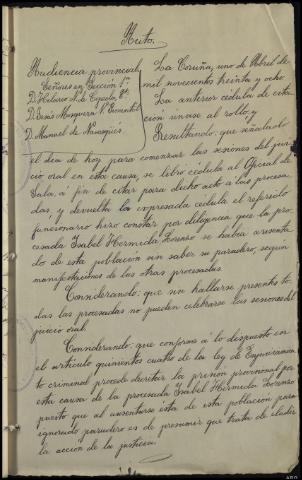 Auto.
Audiencia provincial
Señores en Sección 1ª
D. Hilario N. de Cepeda, Pte
D. Jesús Marquina R. Pimentel
D. Manuel de
La Coruña, uno de Abril de
mil novecientos treinta y ocho
La anterior cédula de cita-
ción unase al rollo, y
Resultando: que señalado
el día de hoy para comenzar las sesiones del jui-
cio oral en esta causa, se libró cédula al Oficial de
Sala, a fin de citar para dicho acto a las procesa-
das, y devuelta la expresada cédula el referido
funcionario hizo constar por diligencia que la pro-
cesada Isabel Hermida Lorenzo se había ausenta-
do de esta población sin saber su paradero, según
manifestaciones de las otras procesadas.
Considerando: que sin hallarse presentes to-
das las procesadas no pueden celebrarse las sesiones del
juicio oral.
Considerando: que conforme a lo dispuesto en
el artículo quinientos cuatro de la ley de Enjuiciamien-
to criminal procede decretar la prisión provisional por
esta causa de la procesada Isabel Hermida Lorenzo
puesto que al ausentarse esta de esta población para
ignorado paradero es de presumir que trata de eludir
la acción de la justicia.